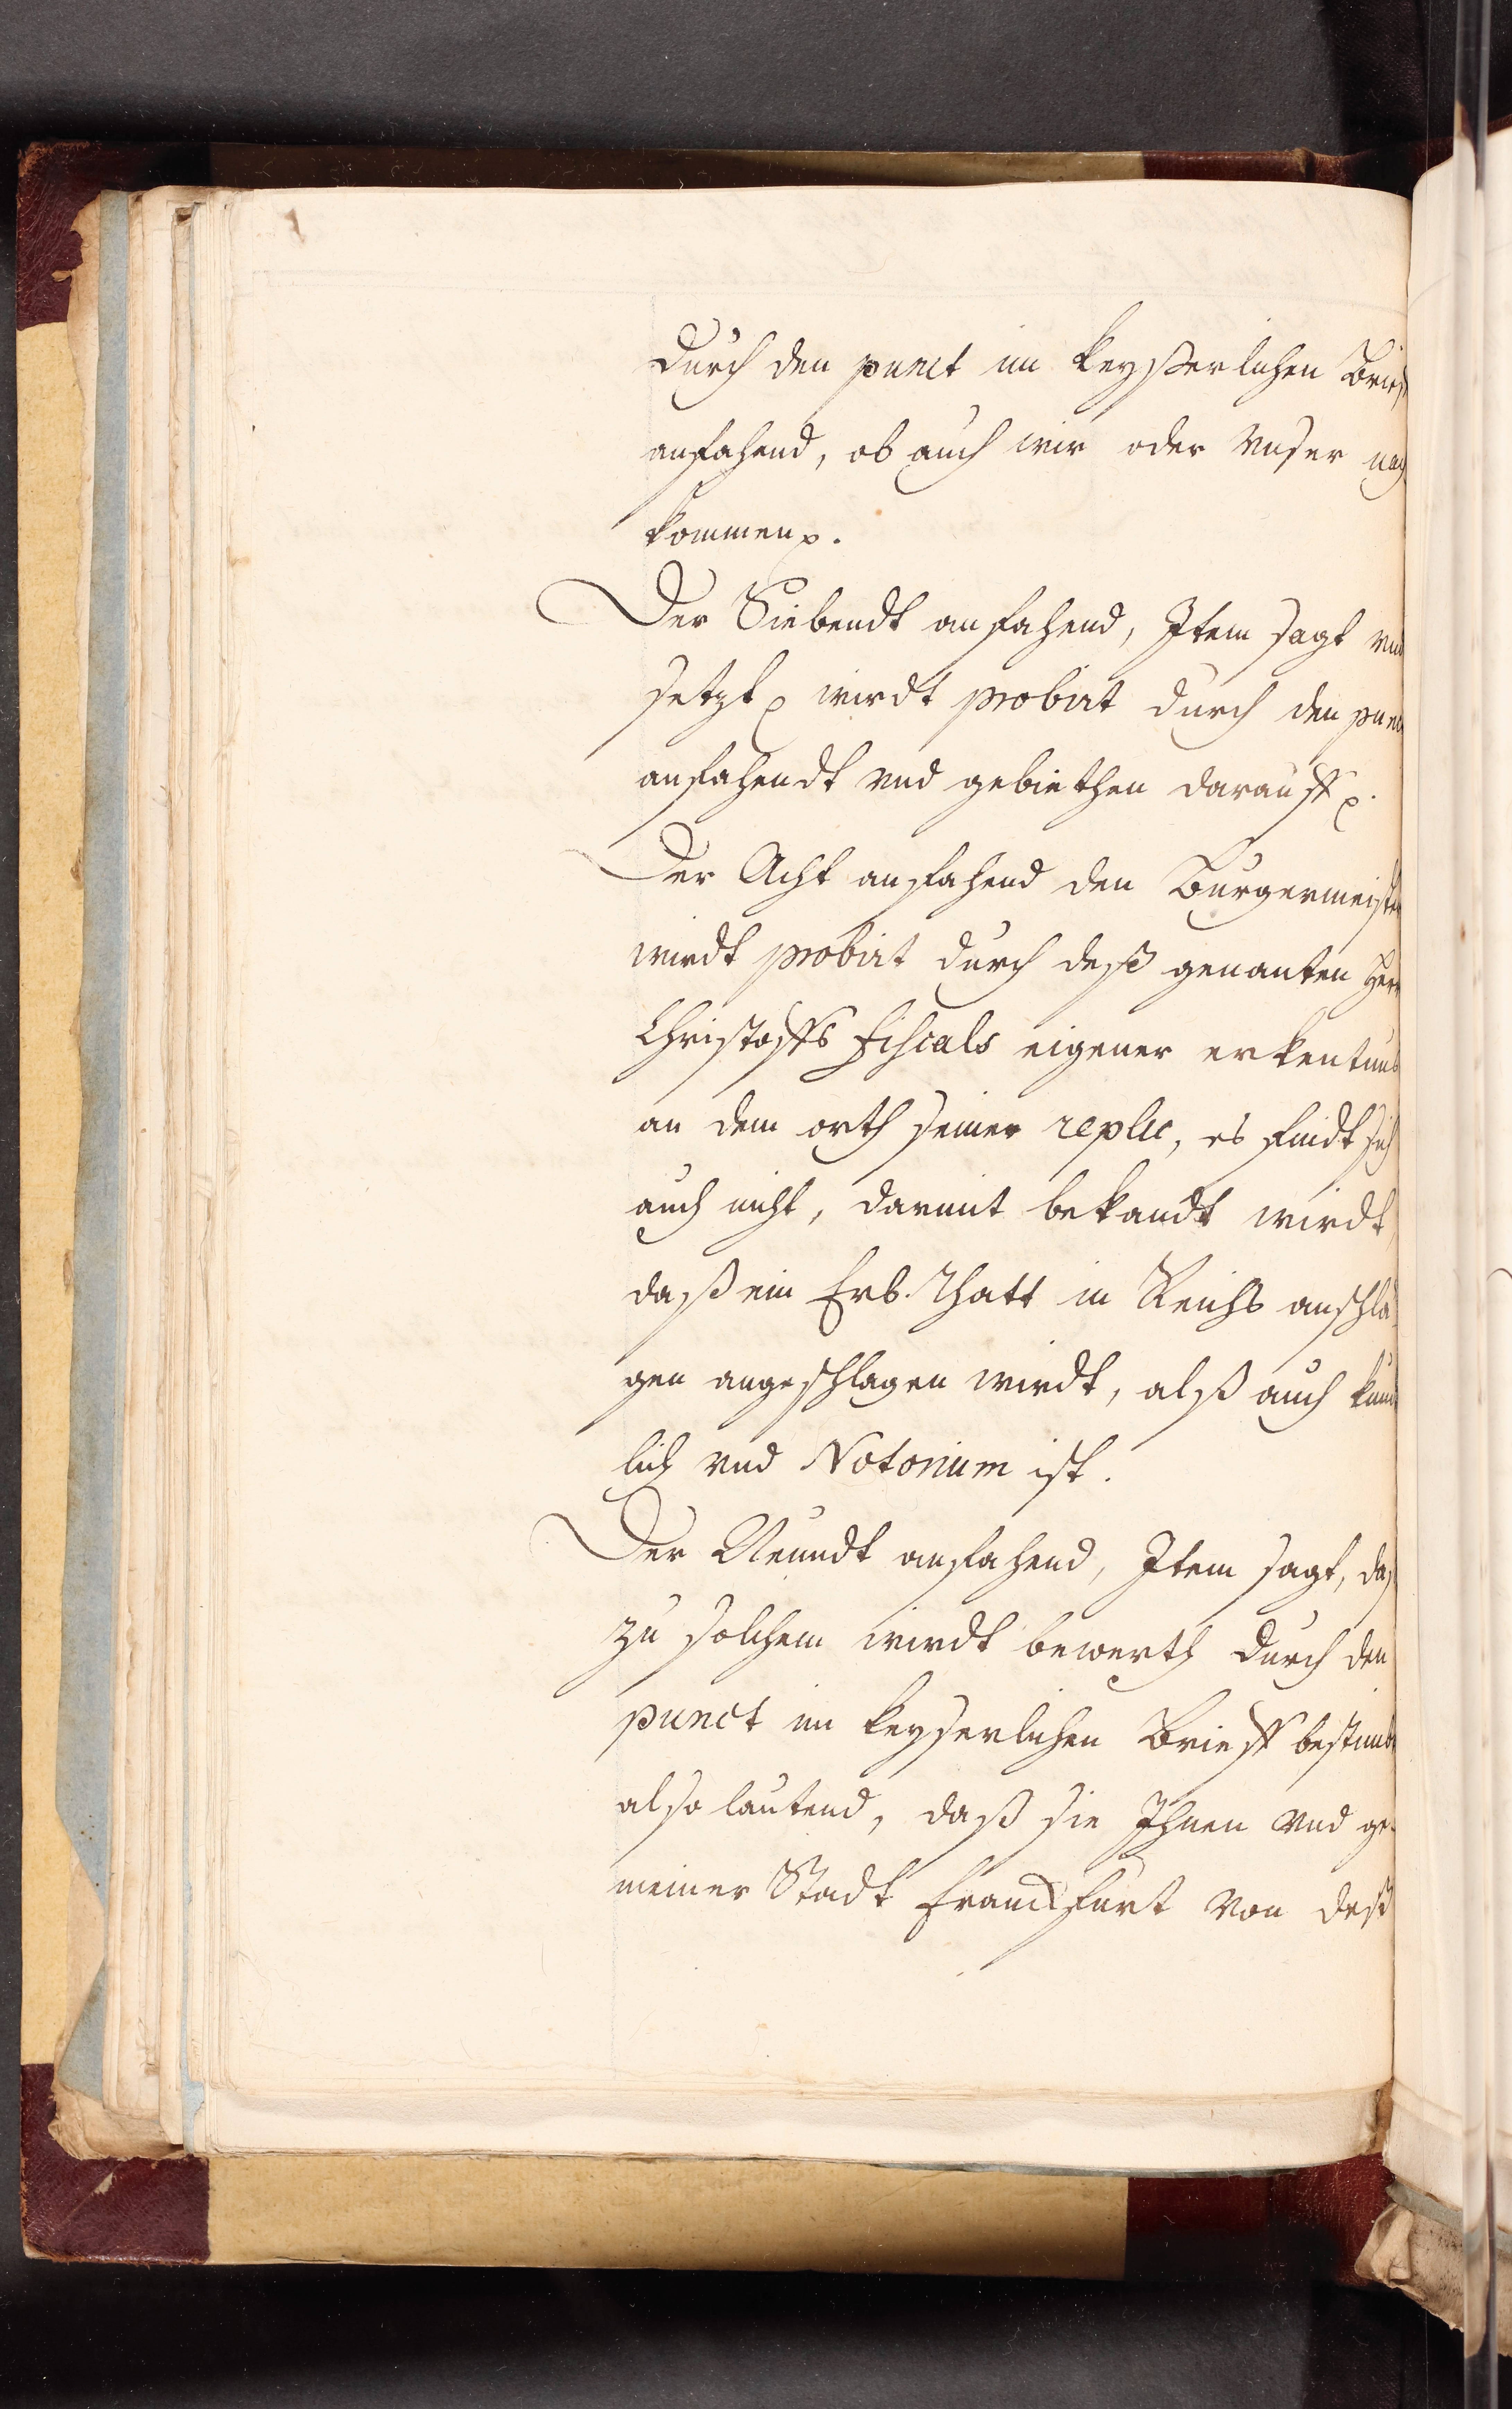 durch den punct im keyßerlichen Brieff
anfahend, ob auch wir oder vnser nach
kommen p.
Der Siebendt anfahend, Item sagt vnd
setzt p wirdt probirt durch den punct
anfahendt vnd gebiethen darauff p.
Der Acht anfahend den Burgermeister
wirdt probirt durch deß genanten Herr
Christoffs Fiscals eigener erkentnus
an dem orth seiner replic, es findt sich
auch nicht, darmit bekandt wirdt,
daß ein Erb. Rhatt in Reichs anschlä
gen angeschlagen wirdt, alß auch kund
lich vnd Notorium ist.
Der Neundt anfahend, Item sagt, daß
zu solchem wirdt bewerth durch den
punct im keyserlichen Brieff bestimbt
also lautend, daß sie Ihnen vnd ge-
meiner Stadt Franckfurt von deß